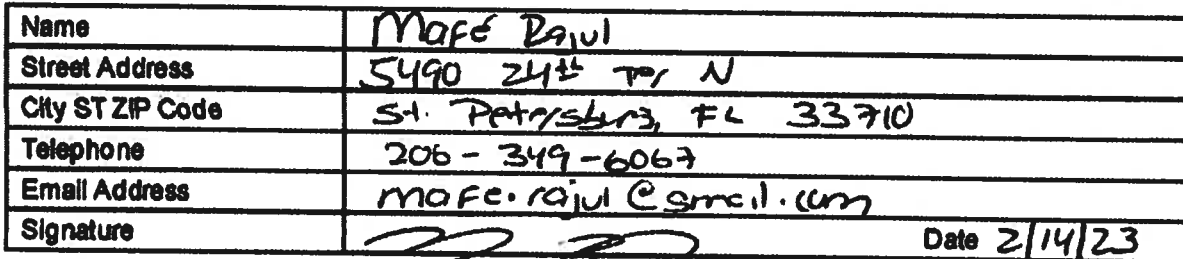 Name Mafé Rajul
Street Address 5490 24th Ter N
City ST ZIP Code St. Petersburg, FL 33710
Telephone 206-349-6067
Email Address mafe.rajul@gmail.com
Signature Date 2/14/23